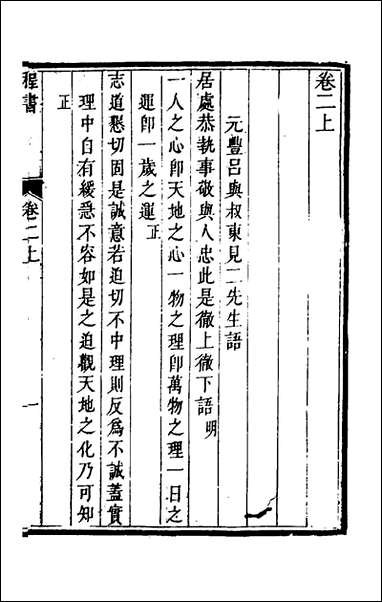 卷二上
元豐呂與叔東見二先生語
居處恭執事敬與人忠此是徹上徹下語明
一人之心卽天地之心一物之理卽萬物之理一日之
運卽一歲之運正
志道懇切固是誠意若迫切不中理則反爲不誠蓋實
理中自有緩急不容如是之迫觀天地之化乃可知
正
程書
卷二上
一